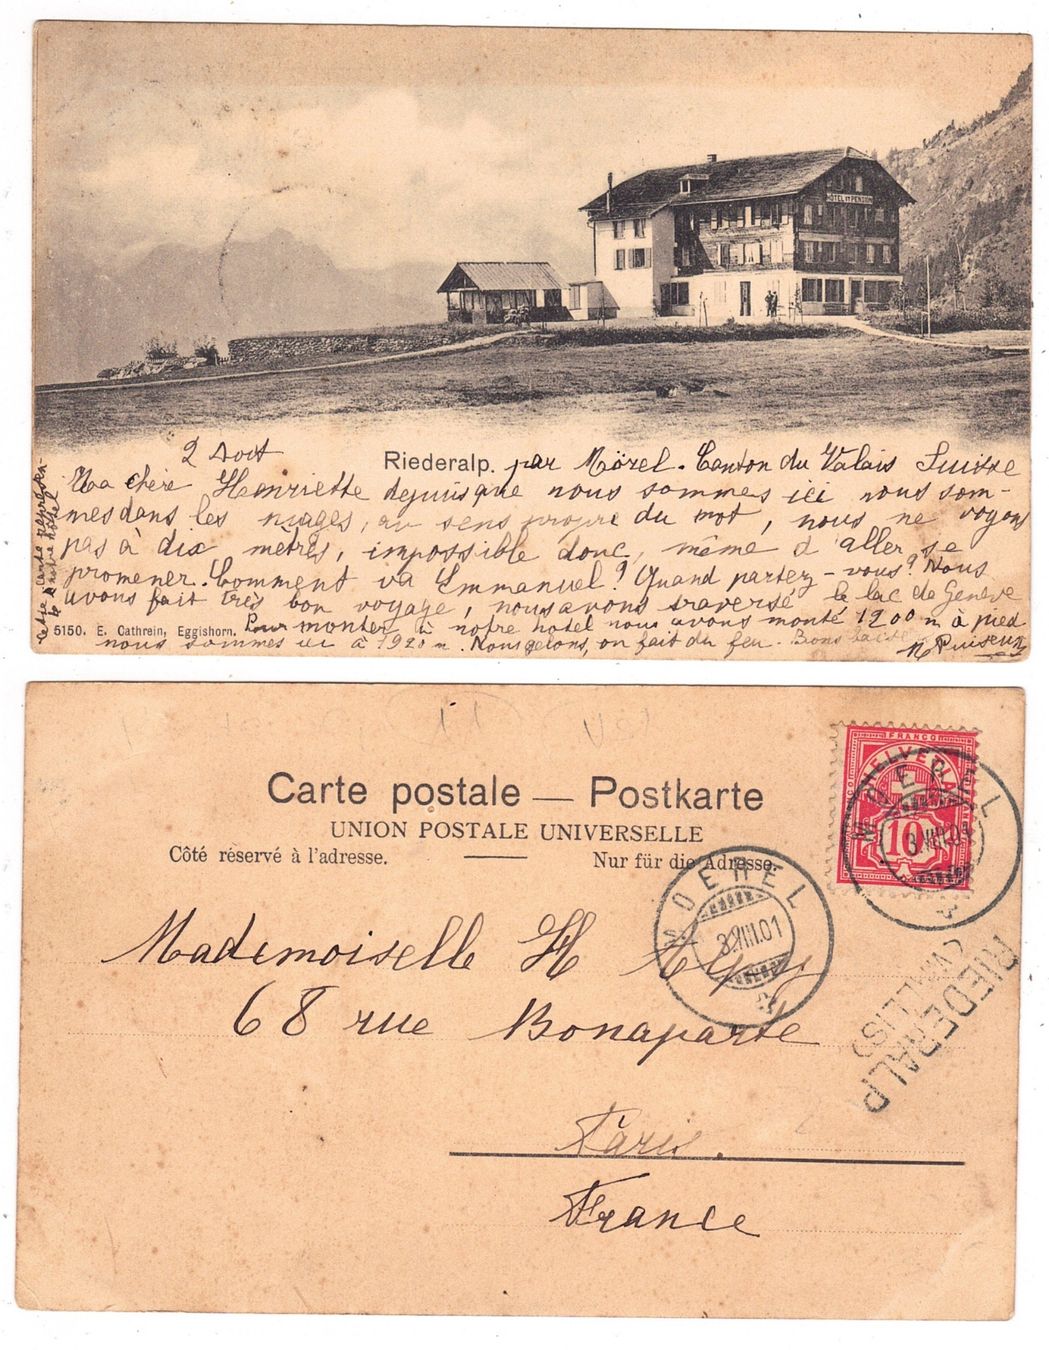 HÔTEL ET PENSION
2 Aout
Riederalp. par Mörel. Canton du Valais Suisse
Ma chère Henriette depuis que nous sommes ici nous som-
mes dans les nuages, au sens propre du mot, nous ne voyons
pas à dix metres, impossible donc, même d'aller se
promener. Comment va Emmanuel? Quand partez-vous? Nous
avons fait très bon voyage, nous avons traversé le lac de Genève
5150. E. Cathrein, Eggishorn. Pour monter à notre hotel nous avons monté 1200 m à pied
nous sommes ici à 1920 m. Nous gelons, on fait du feu. Bons
cette carte represen-
te notre hotel
Carte postale — Postkarte
UNION POSTALE UNIVERSELLE
Côté réservé à l'adresse. Nur für die Adresse.
FRANCO
HELVETIA
10
MOEREL
3.VIII.01
MOEREL
3.VIII.01
RIEDERALP
(VALLIS)
Mademoiselle H
68 rue Bonaparte
Paris.
France